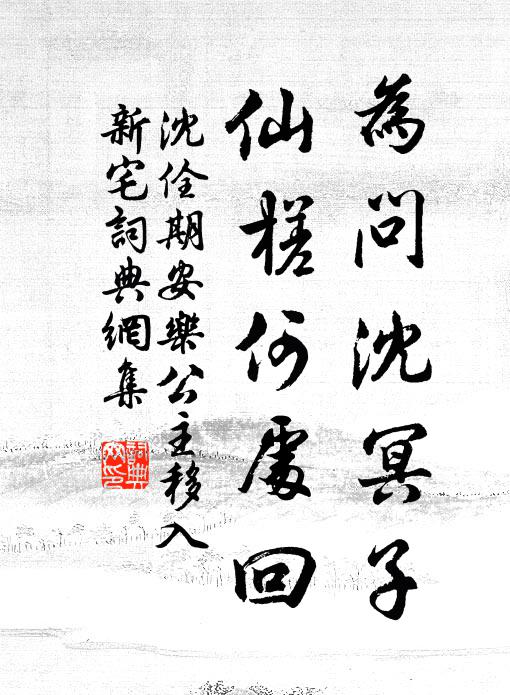 為問沈冥子
仙槎何處回
沈佺期安樂公主移入
新宅詞典網集
詞典